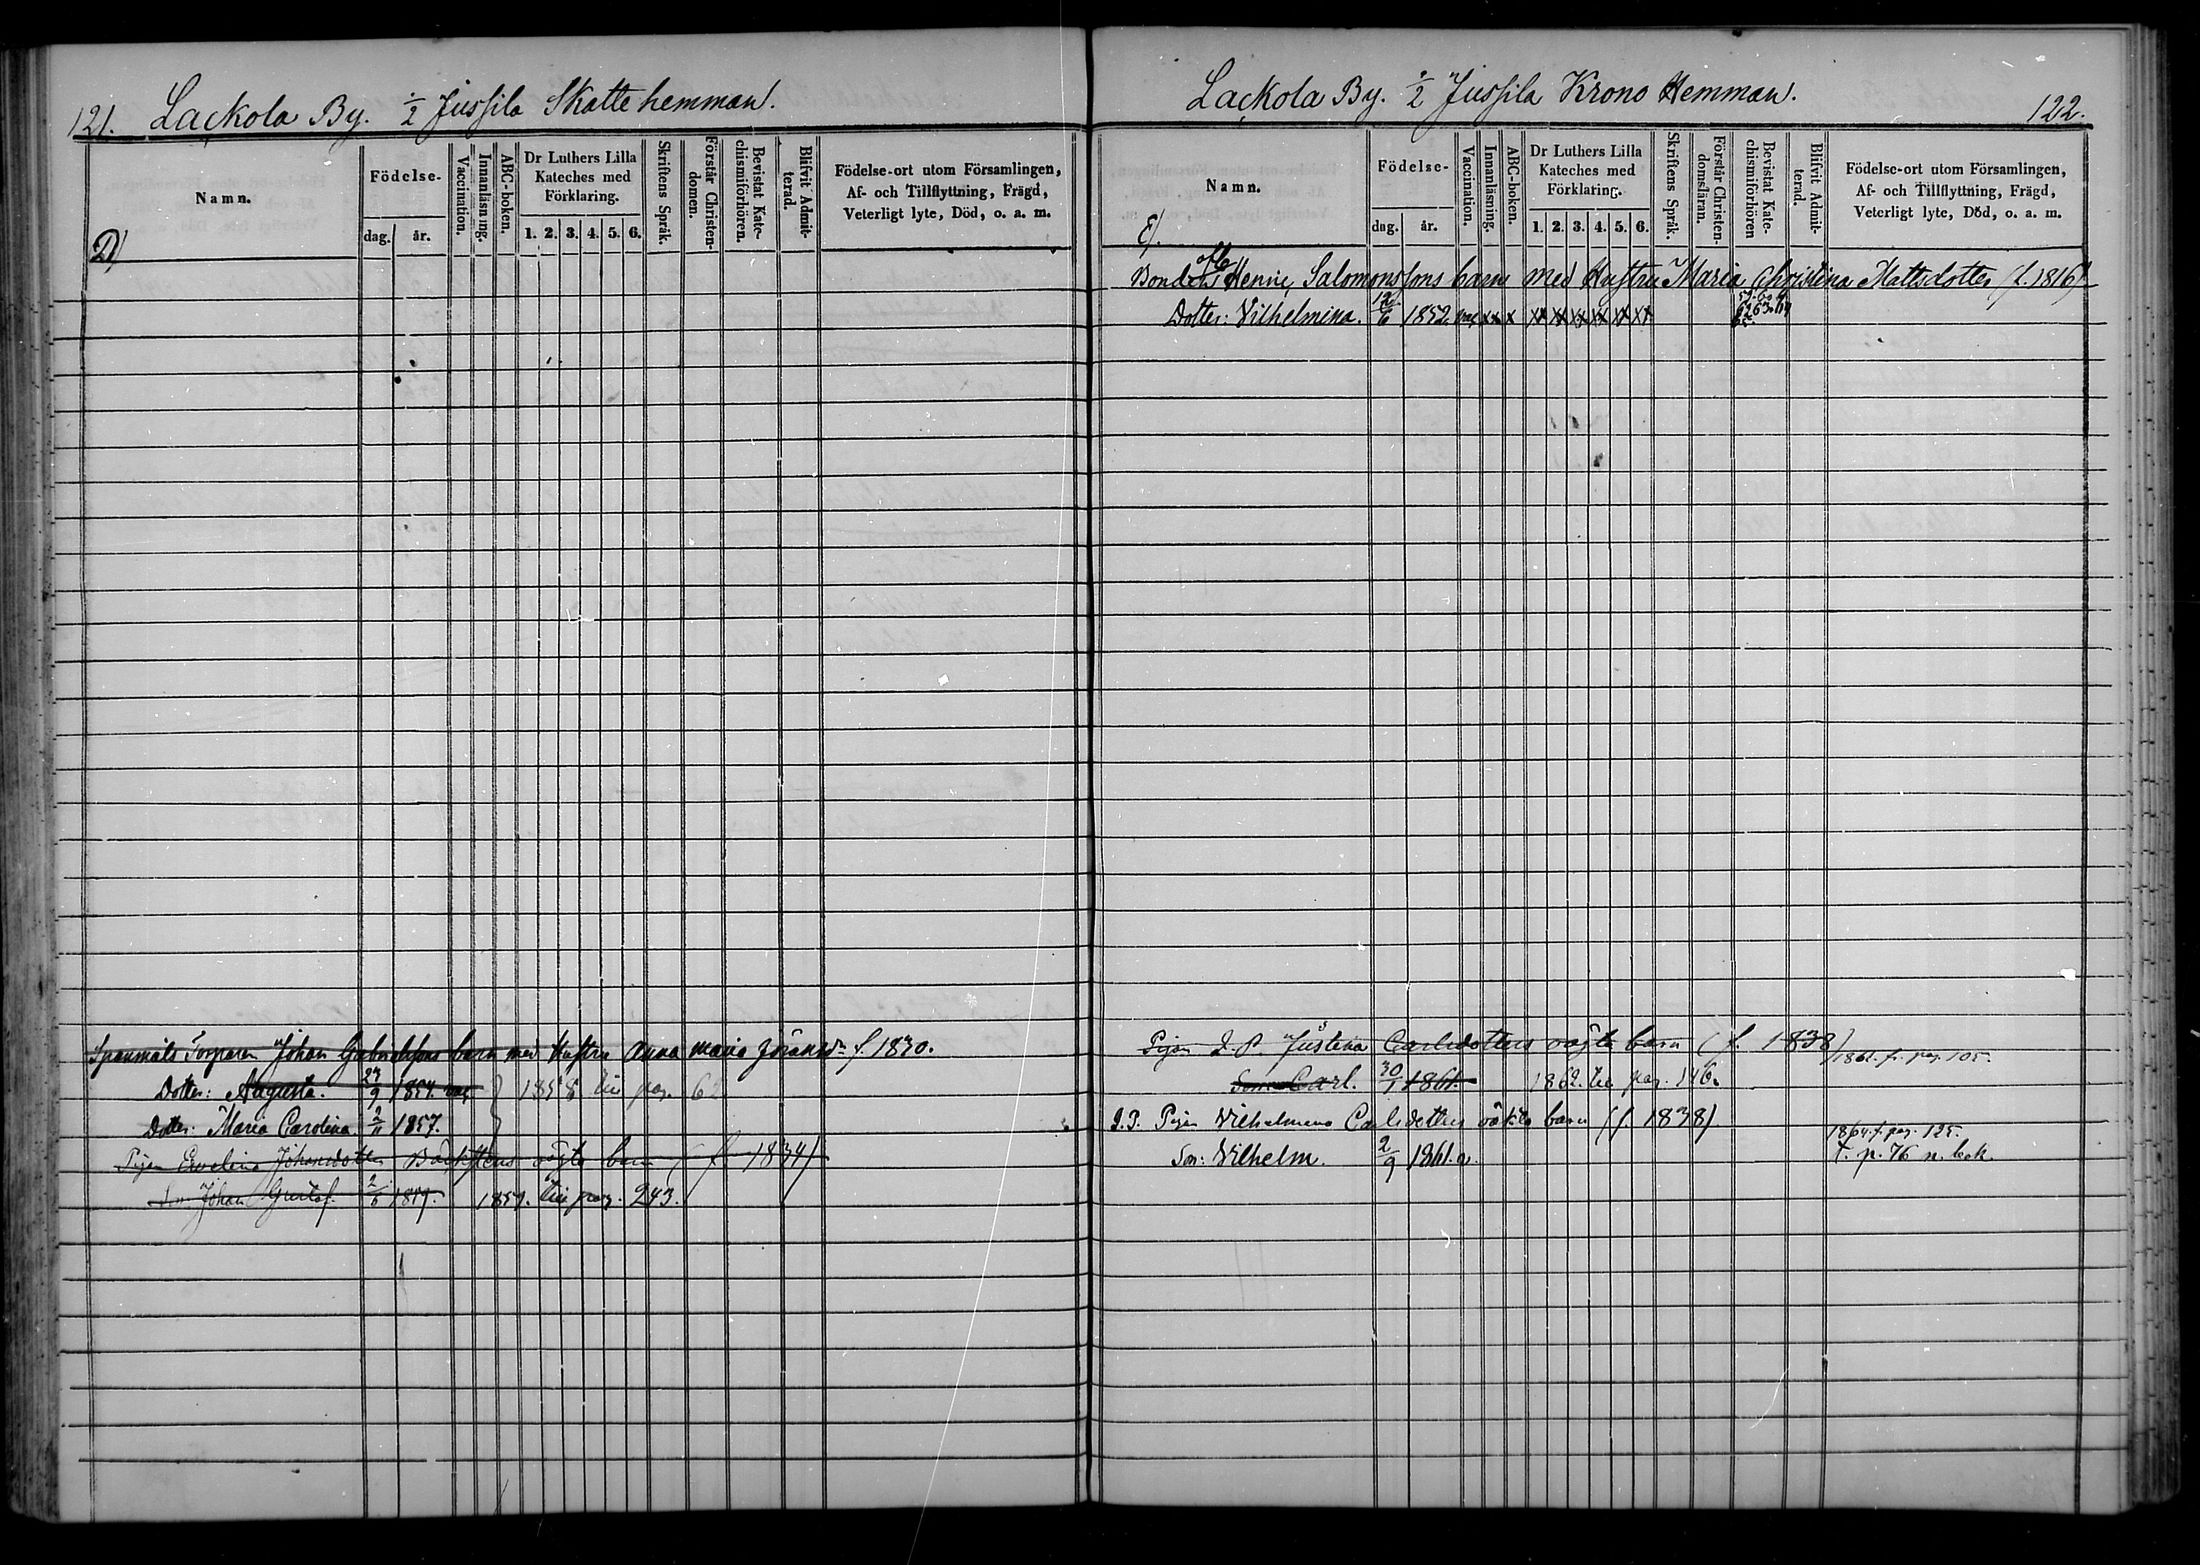 121. Lackola By. 1/2 Jussila Skatte hemman.
Namn.
Födelse-
dag. år.
Vaccination.
Innanläsning.
ABC-boken.
Dr Luthers Lilla Kateches med Förklaring.
1. 2. 3. 4. 5. 6.
Skriftens Språk.
Förstår Christen-domen.
Bevistat Kate-chismiförhören.
Blifvit Admit-terad.
Födelse-ort utom Församlingen,
Af- och Tillflyttning, Frägd,
Veterligt lyte, Död, o. a. m.
D)
Spanmåls Torparen Johan Gabrielssons barn med Hustru Anna Maria f. 1830.
Dotter: Augusta. 23/9 1854. vac
1858 till pag. 62
Dotter: Maria Carolina 2/11 1857.
Pigan Evelina Johansdotter oägta barn ( f. 1834)
Son Johan Gustaf. 2/6 1857. 1859. till pag. 243.
Lackola By. 1/2 Jussila Krono Hemman. 122.
Namn.
Födelse-
dag. år.
Vaccination.
Innanläsning.
ABC-boken.
Dr Luthers Lilla Kateches med Förklaring.
1. 2. 3. 4. 5. 6.
Skriftens Språk.
Förstår Christen-domsläran.
Bevistat Kate-chismiförhören
Blifvit Admit-terad.
Födelse-ort utom Församlingen,
Af- och Tillflyttning, Frägd,
Veterligt lyte, Död, o. a. m.
Bonden Henric Salomonssons barn med Hustru Maria Christina Mattsdotter (f. 1816)
Dotter: Vilhelmina. 12/6 1852. vac xx x xx xx xx xx xx xx
Pigan I. P. Justina Carlsdotters oägta barn ( f. 1838)
1861. fr. pag. 105.
Son Carl. 30/1 1861. 1862. till pag. 146.
I. P. Pigan Vilhelmina Carlsdotters oäkta barn (f. 1838)
1864. f. pag. 125.
Son: Vilhelm. 2/9 1861. v. t. p. 76 n. bok.